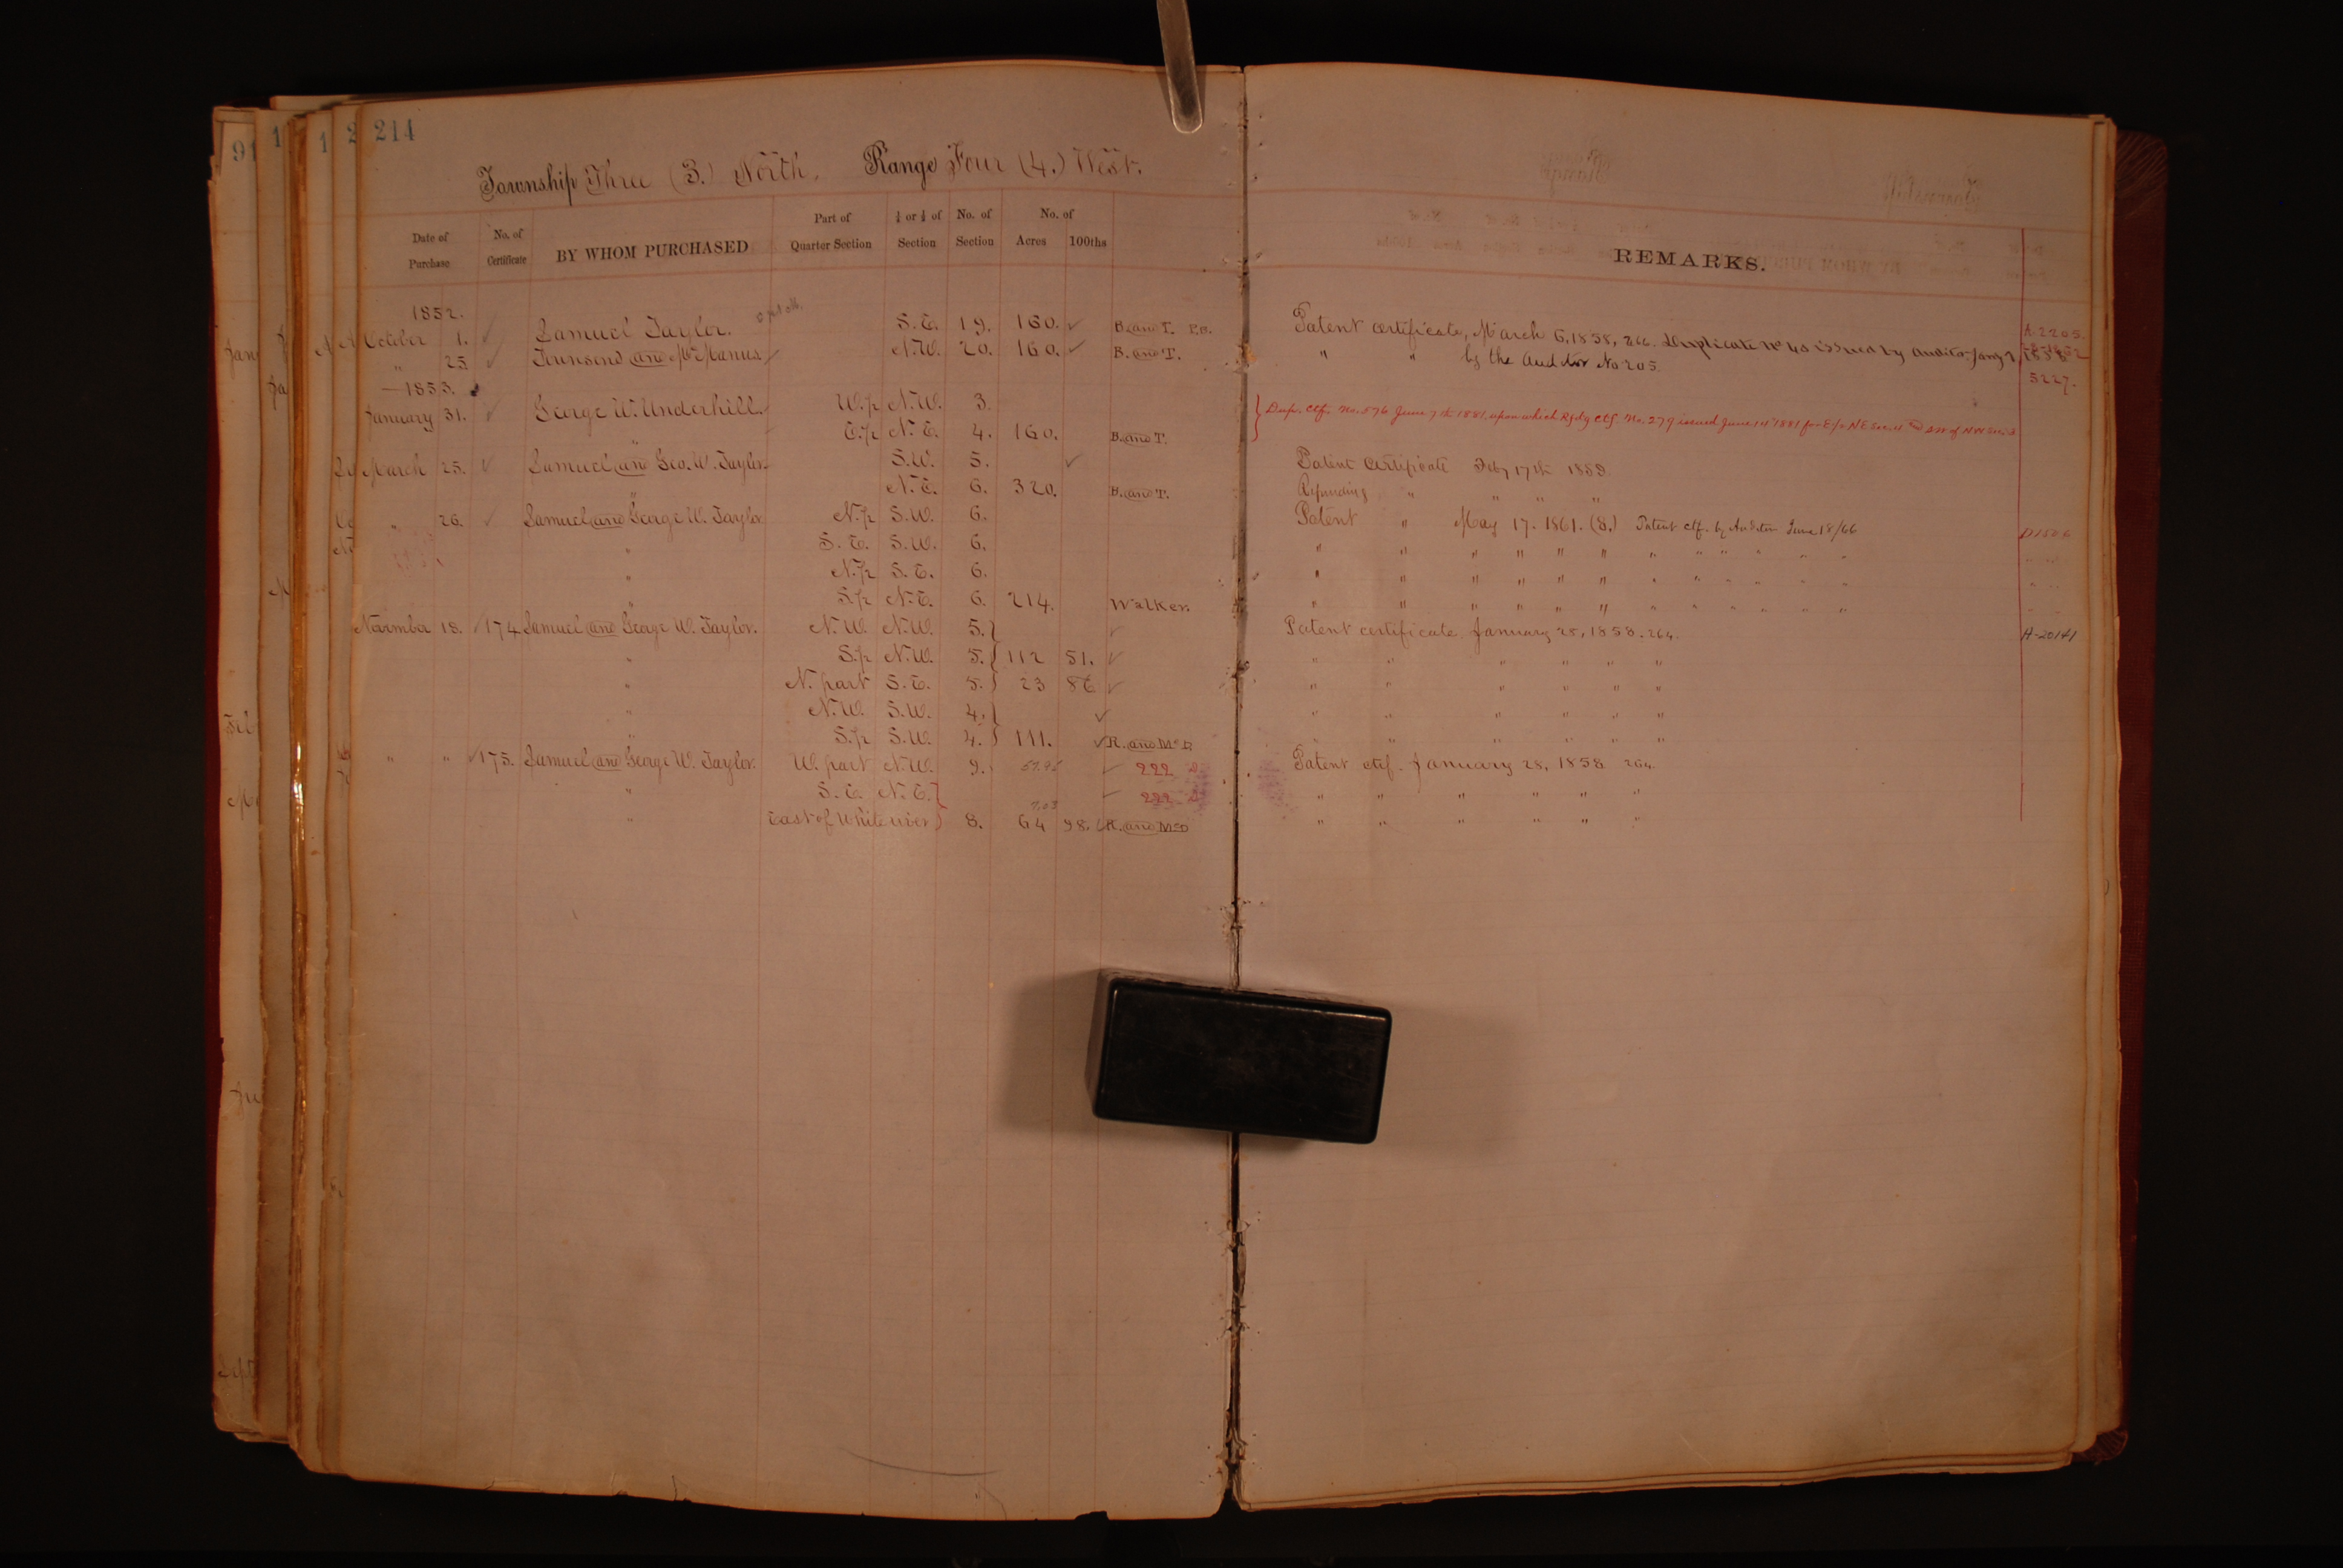 91 1 1 2 214
Township Three (3.) North, Range Four (4.) West.
Date of Purchase No. of Certificate BY WHOM PURCHASED Part of Quarter Section ¼ or ½ of Section No. of Section No. of Acres 100ths REMARKS.
1852.
October 1. ✓ Samuel Taylor. S.E. 19. 160. ✓ B. and T. P.B. Patent certificate, March 6, 1858, 266. Duplicate No 40 issued by Auditor Jany 2, 1858 A-2205
" 25. ✓ Townsend and McManus N.W. 20. 160. ✓ B. and T. " " by the Auditor No 205.
1853. 5227.
January 31. ✓ George W. Underhill. W.½ N.W. 3.
E.½ N.E. 4. 160. B. and T. Dup. Ctf. No. 576 June 7th 1881, upon which Rfdg Ctf. No. 279 issued June 14" 1881 for E/2 NE Sec. 4 & SW of NW Sec. 3
March 25. ✓ Samuel and Geo. W. Taylor S.W. 5. ✓ Patent Certificate Feby 17th 1859.
" N.E. 6. 320. B. and T. Refunding " " " "
" 26. ✓ Samuel and George W. Taylor N.½ S.W. 6. Patent " May 17. 1861. (8.) Patent ctf. by Auditor June 18/66 D1506
" S.E. S.W. 6. " " " " " " " " " " " "
" N.½ S.E. 6. " " " " " " " " " " " "
" S.½ N.E. 6. 214. Walker. " " " " " " " " " " " "
November 18. ✓ 174 Samuel and George W. Taylor. N.W. N.W. 5. ✓ Patent certificate January 28, 1858. 264. A-20141
" S.½ N.W. 5. 112 51. ✓ " " " " " "
" N. part S.E. 5. 23 86 ✓ " " " " " "
" N.W. S.W. 4. ✓ " " " " " "
" S.½ S.W. 4. 111. ✓ R. and McD " " " " " "
" " ✓ 175. Samuel and George W. Taylor. W. part N.W. 9. 57.95 ✓ 222 Patent ctf. January 28, 1858 264.
" S.E. N.E. ✓ 222 " " " " " "
" East of White river 8. 64 98. R. and McD " " " " " "